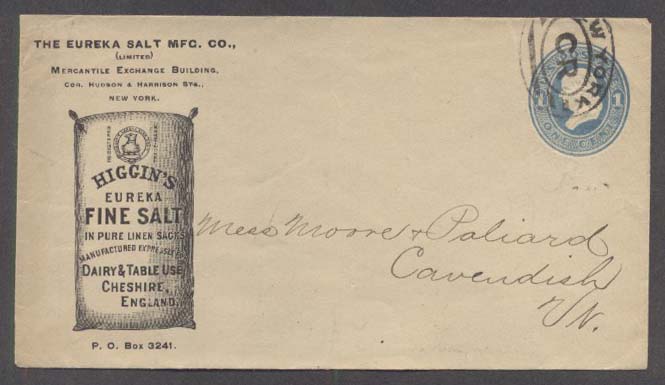 THE EUREKA SALT MFG. CO.,
(LIMITED)
MERCANTILE EXCHANGE BUILDING,
COR. HUDSON & HARRISON STS.,
NEW YORK.
REGISTERED
TRADE MARK
HIGGIN'S
EUREKA
FINE SALT
IN PURE LINEN SACKS
MANUFACTURED EXPRESSLY FOR
DAIRY & TABLE USE
CHESHIRE,
ENGLAND.
P. O. Box 3241.
NEW YORK
1 1
ONE CENT
Mess Moore & Poliard
Cavendish
Vt.